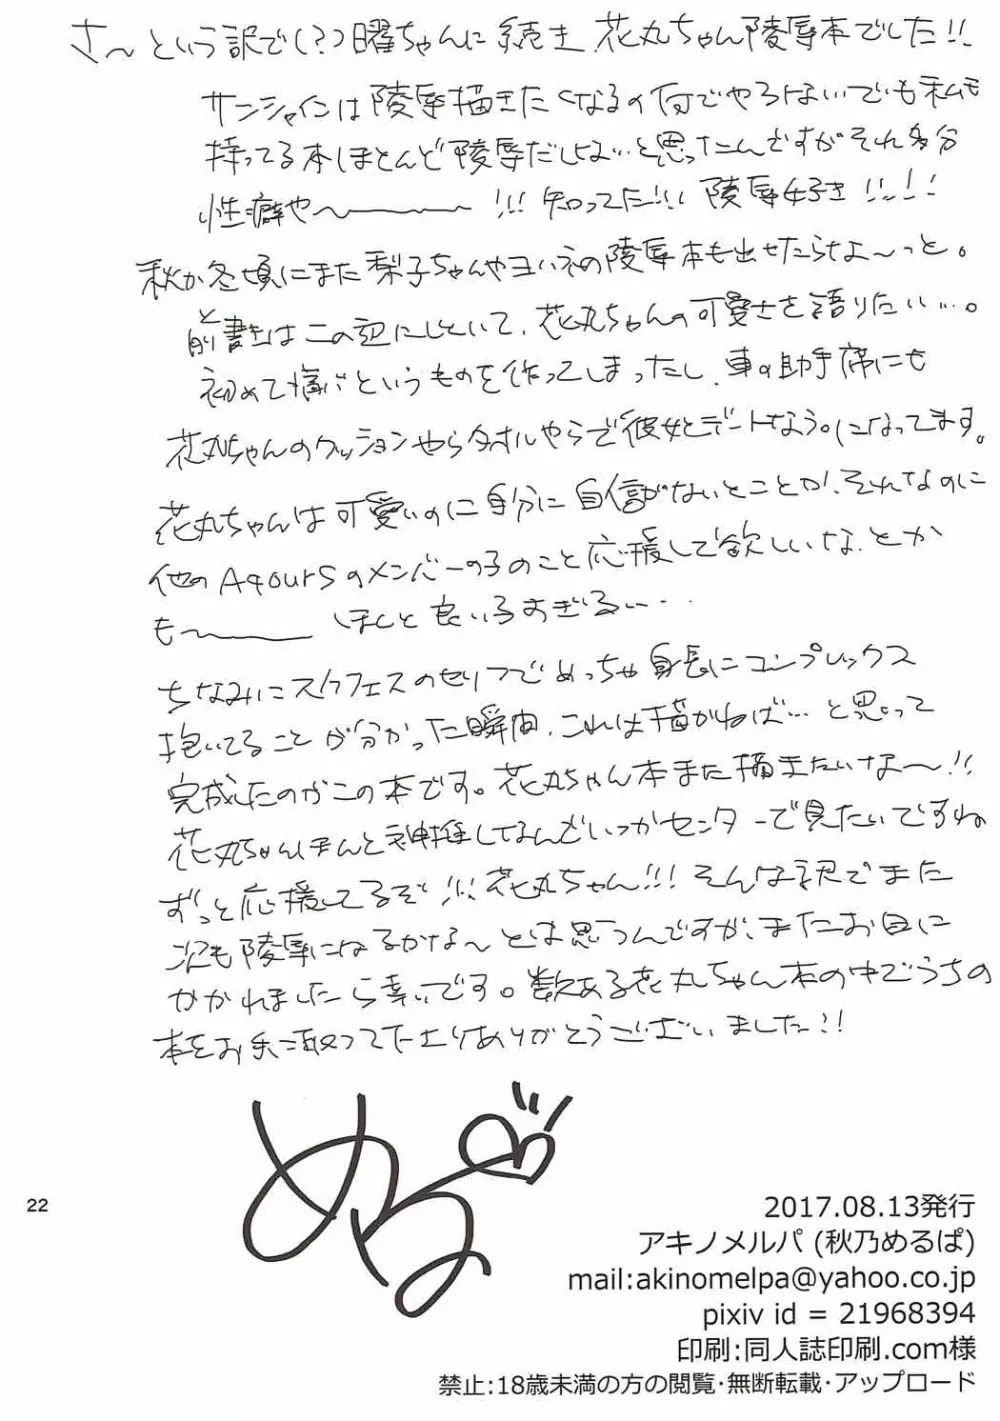 さ〜という訳で(?)曜ちゃんに続き花丸ちゃん陵辱本でした!!
サンシャインは陵辱描きたくなるの何でやろ、ないでも私も
持ってる本ほとんど陵辱だしな…と思ったんですがそれ多分
性癖や〜!!! 知ってた!!! 陵辱好き!!!!
秋か冬頃にまた梨子ちゃんやヨハネの陵辱本も出せたらなぁ〜っと。
前書きはこの辺にしといて、花丸ちゃんの可愛さを語りたい…。
初めて痛バというものを作ってしまったし、車の助手席にも
花丸ちゃんのクッションやらタオルやらで彼女とデートなう。になってます。
花丸ちゃんは可愛いのに自分に自信がないとことか、それなのに
他のAqoursのメンバーの子のこと応援して欲しいな、とか
も〜 ほんと良い子すぎる…
ちなみにスクフェスのセリフでめっちゃ身長にコンプレックス
抱いてることが分かった瞬間、これは描かねば…と思って
完成したのがこの本です。花丸ちゃん本また描きたいな〜!!
花丸ちゃんほんと神推してるんでいつかセンターで見たいですね
ずっと応援してるぞ!!! 花丸ちゃん!!! そんな訳でまた
次も陵辱になるかな〜とは思うんですが、またお目に
かかれましたら幸いです。数ある花丸ちゃん本の中でうちの
本をお手に取って下さりありがとうございました!!
める
22
2017.08.13発行
アキノメルパ (秋乃めるぱ)
mail:akinomelpa@yahoo.co.jp
pixiv id = 21968394
印刷:同人誌印刷.com様
禁止:18歳未満の方の閲覧・無断転載・アップロード